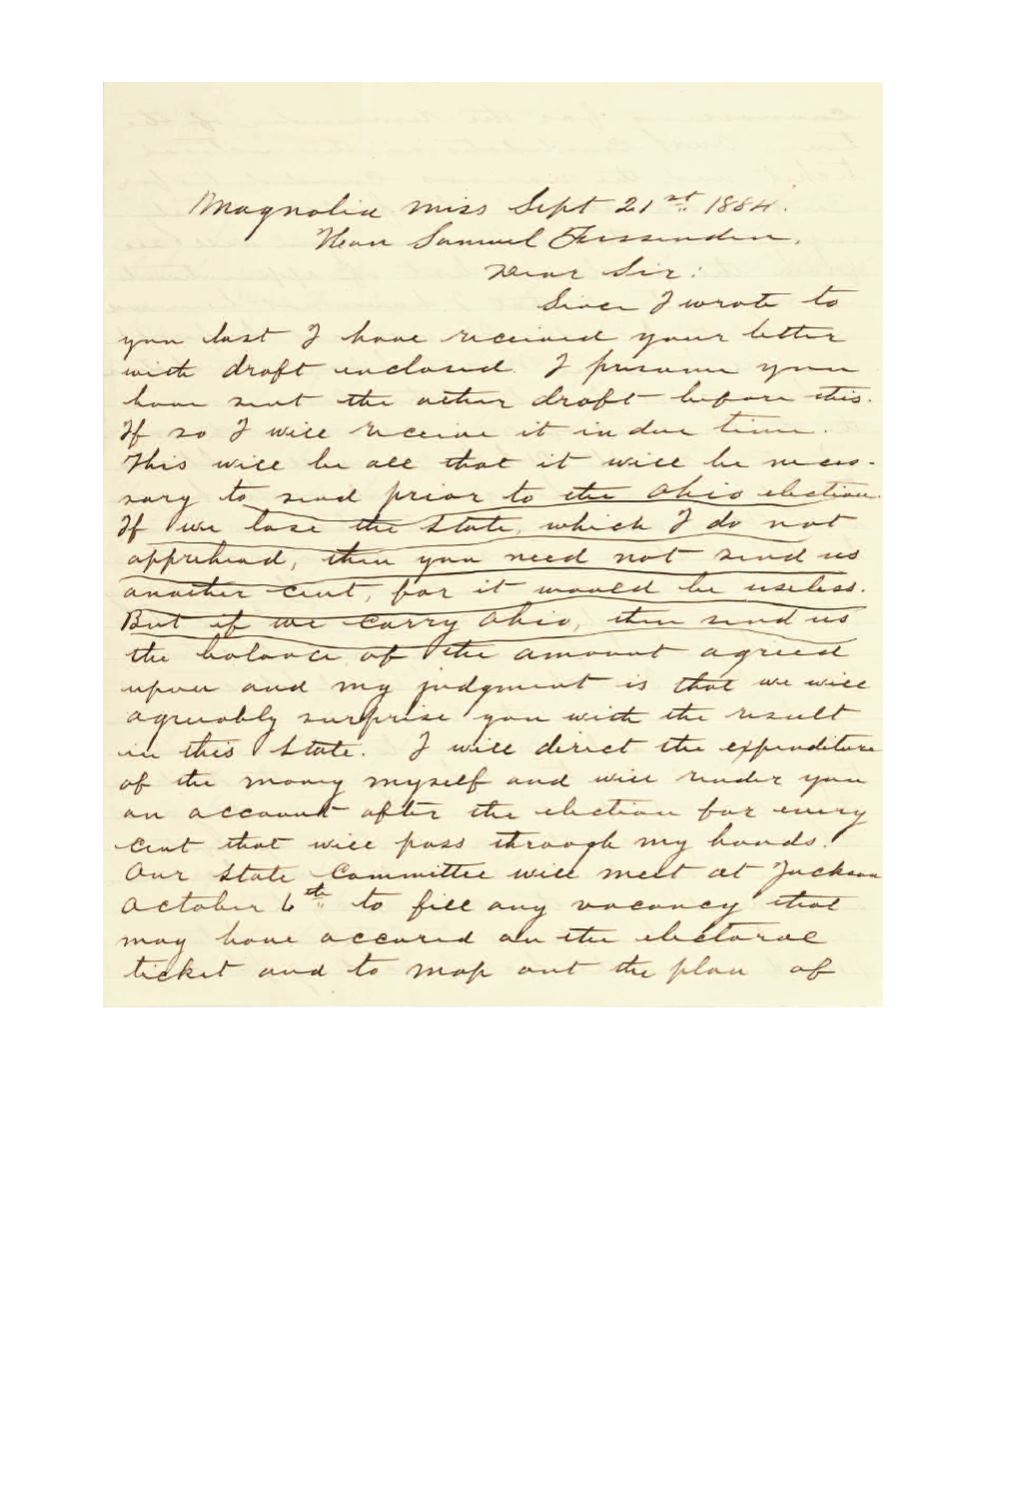 Magnolia Miss Sept 21st 1884.
Hon Samuel Fessenden.
Dear Sir:
Since I wrote to
you last I have received your letter
with draft enclosed. I presume you
have sent the other draft before this.
If so I will receive it in due time.
This will be all that it will be neces-
sary to send prior to the Ohio election.
If we lose the State, which I do not
apprehend, then you need not send us
another cent, for it would be useless.
But if we carry Ohio, then send us
the balance of the amount agreed
upon and my judgment is that we will
agreeably surprise you with the result
in this State. I will direct the expenditure
of the money myself and will render you
an account after the election for every
cent that will pass through my hands.
Our State Committee will meet at Jackson
October 6th to fill any vacancy that
may have accured on the electoral
ticket and to map out the plan of